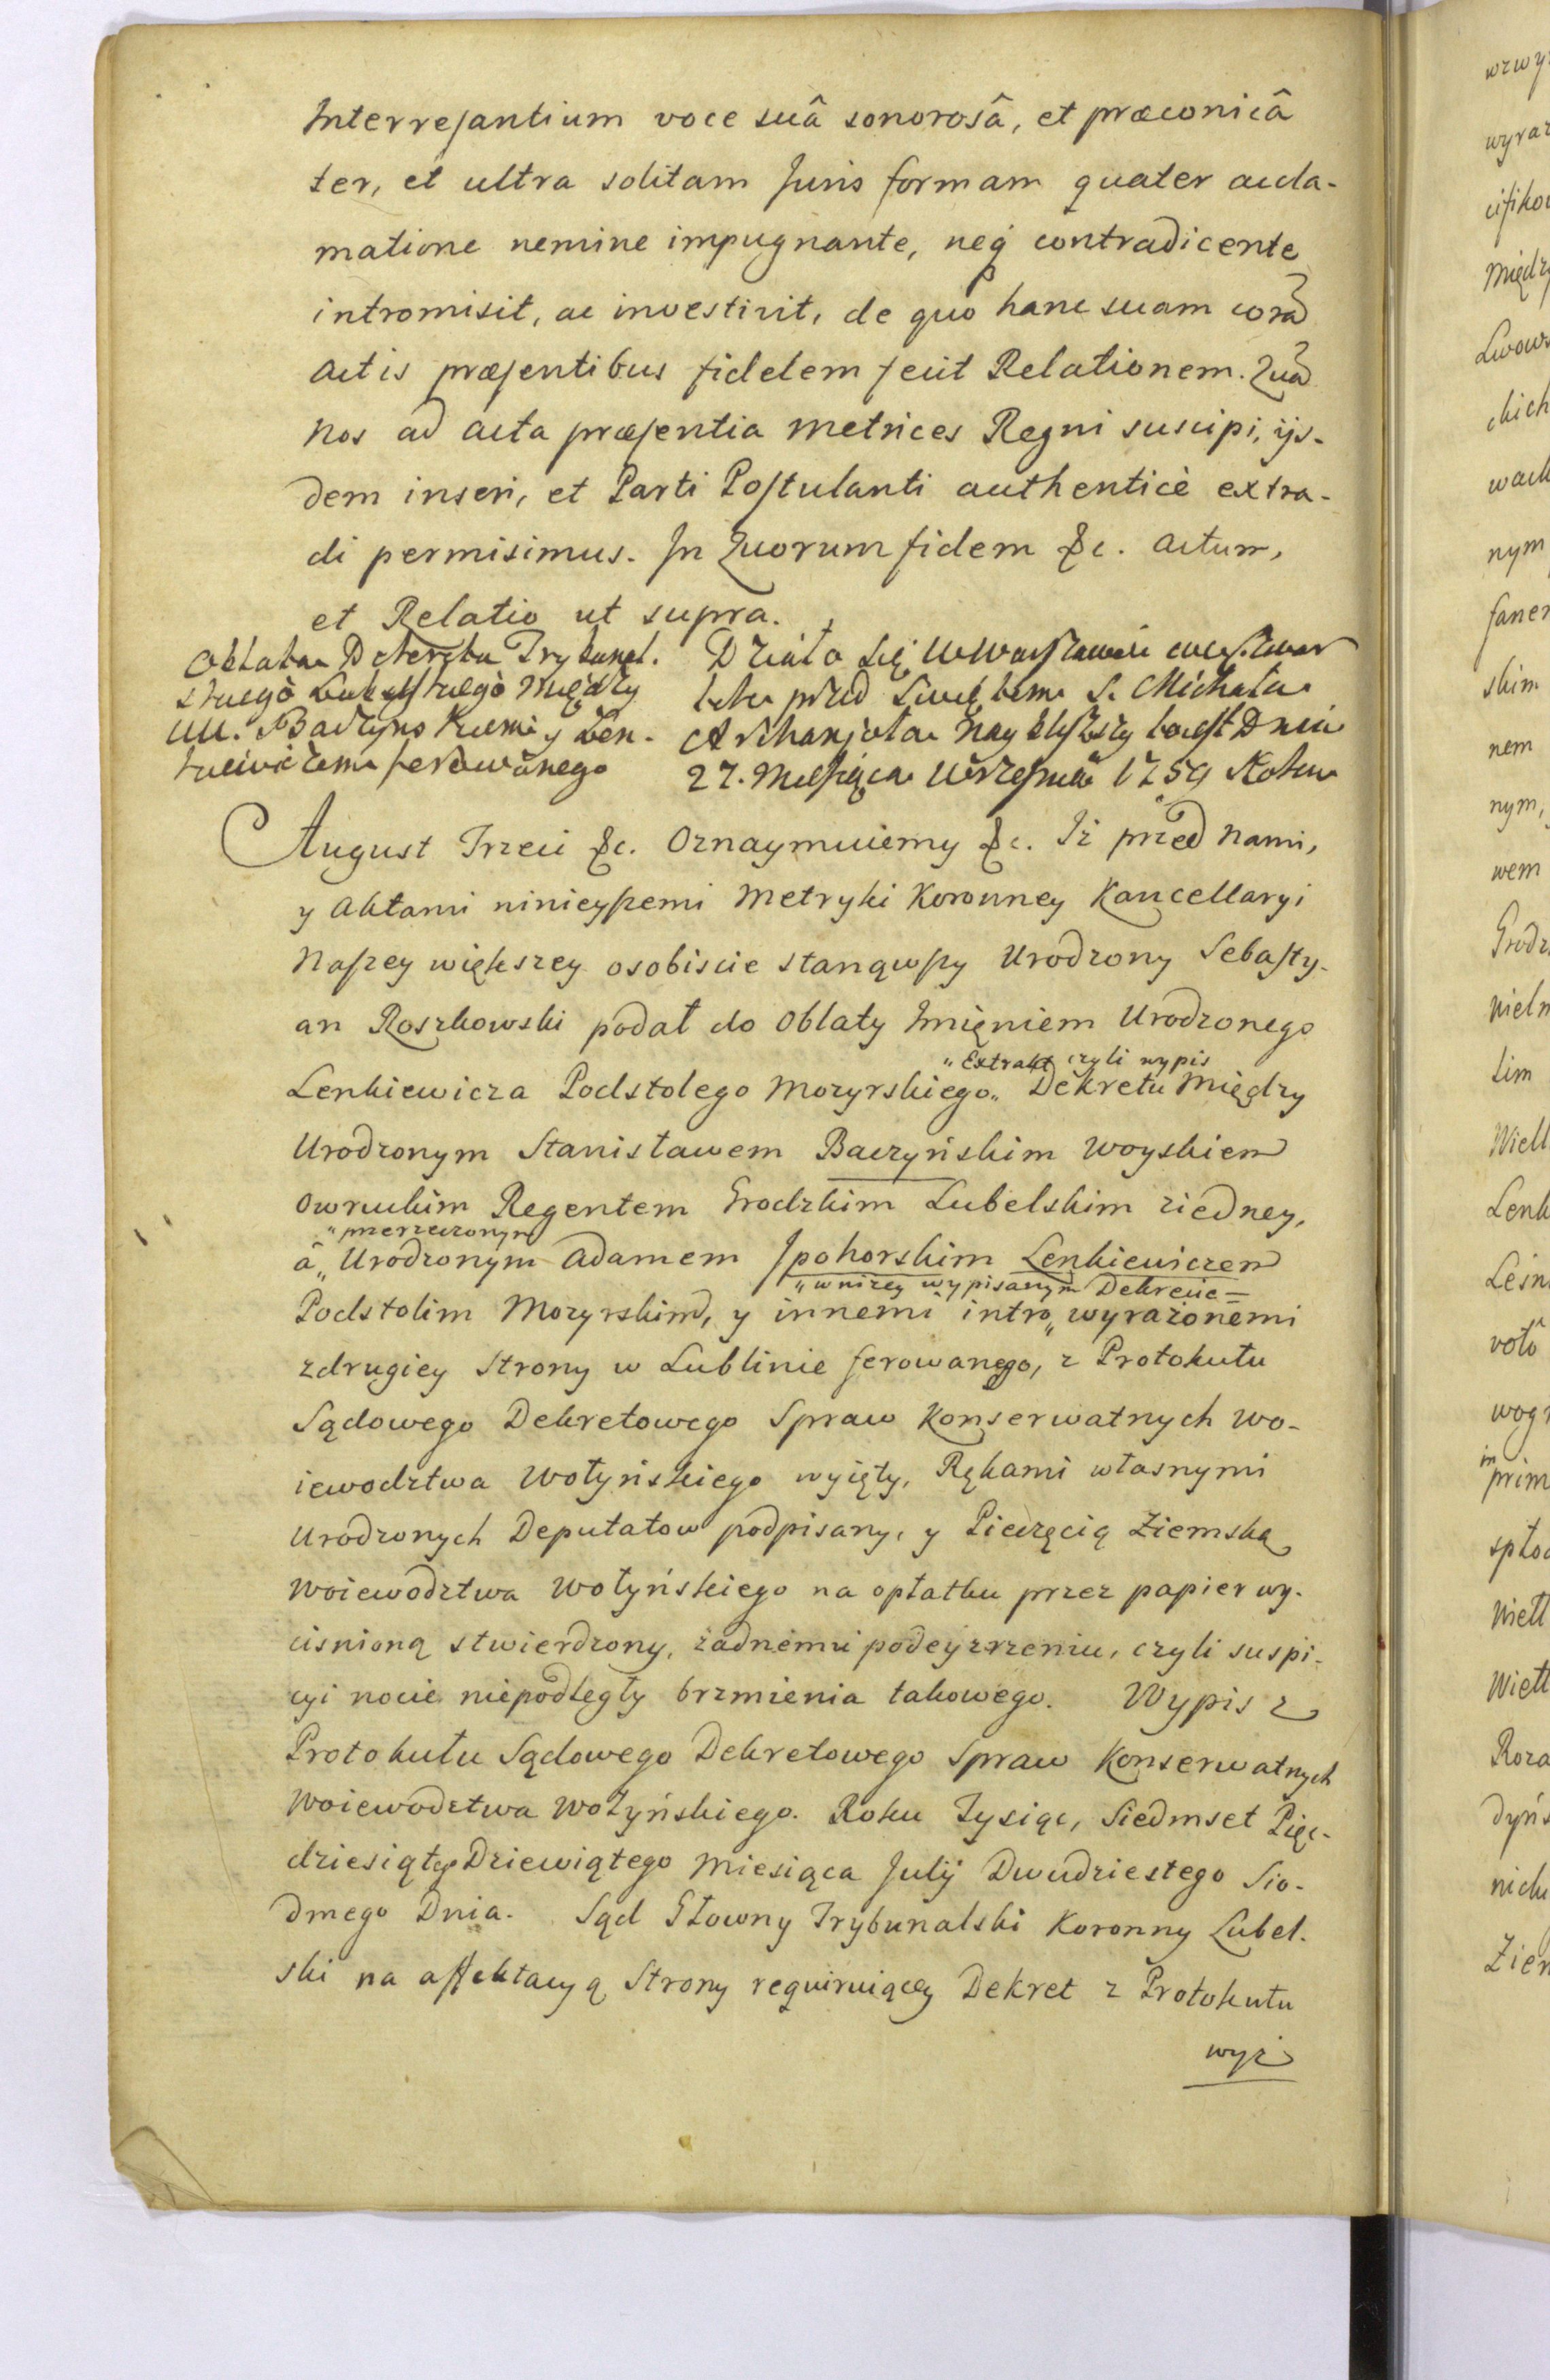 Interressantium voce suâ sonorosâ, et præconicâ
ter, et ultra solitam Juris formam quater accla-
matione nemine impugnante, neq contradicente
intromisit, ac investivit, de quo hanc suam corã
actis præsentibus fidelem fecit Relationem. Quã
nos ad acta præsentia Metrices Regni suscipi, ijs-
dem inseri, et Parti Postulanti authenticè extra-
di permisimus. In Quorum fidem &c. actum,
et Relatio ut supra.
Oblata Dekretu Trybunal.
skiego Lubelskiego między
UU. Baczynskiemi y Len-
kiewiczem ferowanego
Działo się w Warszawie we Czwar
tek przed Swiętem S. Michała
Archanjoła nay bliższy to iest Dnia
27. Miesiąca Września 1759 Roku
August Trzeci &c. Oznaymuiemy &c. Iż przed nami,
y aktami ninieyszemi Metryki Koronney Kancellaryi
Naszey większey osobiscie stanąwszy Urodzony Sebasty-
an Roszkowski podał do Oblaty Imięniem Urodzonego
„Extrakt czyli wypis
Lenkiewicza Podstolego Mozyrskiego„ Dekretu Między
Urodzonym Stanisławem Baczyńskim Woyskiem
Owruckim Regentem Grodzkim Lubelskim ziedney,
„przerzeczonym
â„ Urodzonym Adamem Ipohorskim Lenkiewiczem
„w nizey wypisanym Dekrecie=
Podstolim Mozyrskim, y innemi intro„ wyrażonemi
zdrugiey Strony w Lublinie ferowanego, z Protokułu
Sądowego Dekretowego Spraw Konserwatnych Wo-
iewodztwa Wołyńskiego wyięty, Rękami własnymi
Urodzonych Deputatow podpisany, y Pieczęcią Ziemską
Woiewodztwa Wołyńskiego na opłatku przez papier wy-
cisnioną stwierdzony, żadnemu podeyzrzeniu, czyli suspi-
cyi nocie niepodległy brzmienia takowego. Wypis z
Protokułu Sądowego Dekretowego Spraw Konserwatnych
Woiewodztwa Wołyńskiego. Roku Tysiąc, Siedmset Pięć-
dziesiątego Dziewiątego Miesiąca Julij Dwudziestego Sio-
dmego Dnia. Sąd Głowny Trybunalski Koronny Lubel-
ski na affektacyą Strony requiruiącey Dekret z Protokułu
wyż